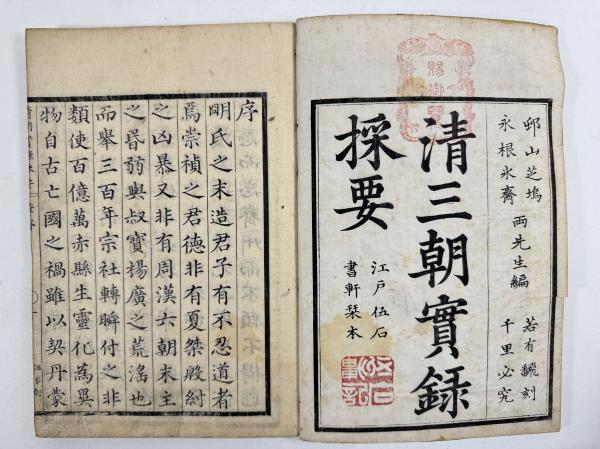 邨山芝塢
永根氷齋
兩先生編
若有飜刻
千里必究
清三朝實録
採要
江戸伍石
書軒栞本
賜御覽
序
明氏之末造君子有不忍道者
焉崇禎之君德非有夏桀殷紂
之凶暴又非有周漢六朝末主
之昬弱與叔寶楊廣之荒淫也
而舉三百年宗社轉瞬付之非
類使百億萬赤縣生靈化為異
物自古亡國之禍雖以契丹蒙